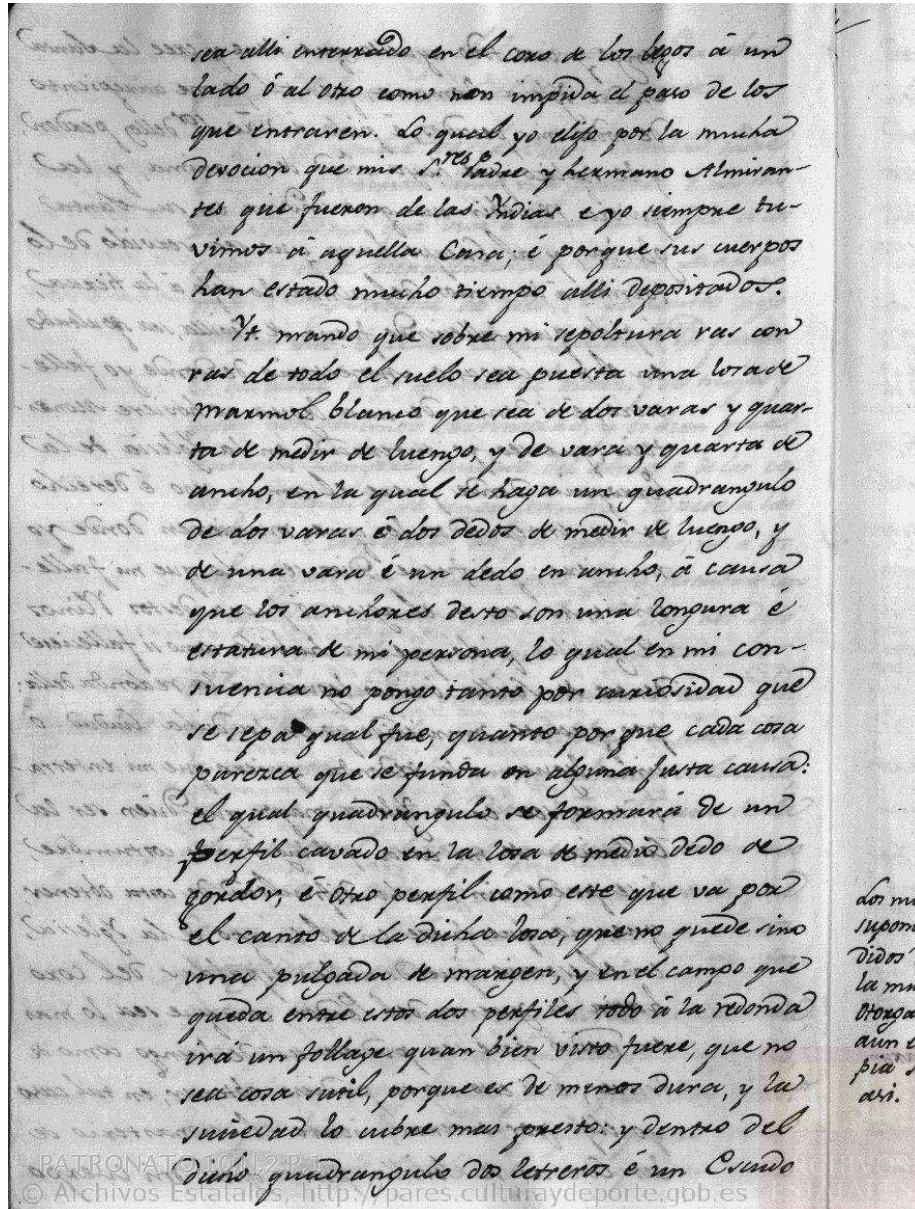 sea alli enterrado en el coro de los legos á un
lado ó al otro como non impida el paso de los
que entraren. Lo qual yo elijo por la mucha
devocion que mis S.res Padre y hermano Almiran-
tes que fueron de las Yndias e yo siempre tu-
vimos á aquella Casa; é porque sus cuerpos
han estado mucho tiempo alli depositados.
Yt. mando que sobre mi sepoltura ras con
ras de todo el suelo sea puesta una losa de
marmol blanco que sea de dos varas y quar-
ta de medir de luengo, y de vara y quarta de
ancho, en la qual se haga un quadrangulo
de dos varas é dos dedos de medir de luengo, y
de una vara é un dedo en ancho, á causa
que los anchores desto son una longura é
estatura de mi persona, lo qual en mi con-
suencia no pongo tanto por curiosidad que
se sepa qual fue, quanto por que cada cosa
parezca que se funda en alguna justa causa:
el qual quadrangulo se formará de un
perfil cavado en la losa de medio dedo de
gordor, é otro perfil como este que va por
el canto de la dicha losa, que no quede sino
una pulgada de margen, y en el campo que
queda entre estos dos perfiles todo á la redonda
irá un follage quan bien visto fuere, que no
sea cosa sutil, porque es de menos dura, y la
suciedad lo cubre mas presto: y dentro del
dicho quadrangulo dos letreros é un Escudo
Los
didos
aun
pia
asi.
PATRONATO,10,
© Archivos Estatales, http://pares.culturaydeporte.gob.es